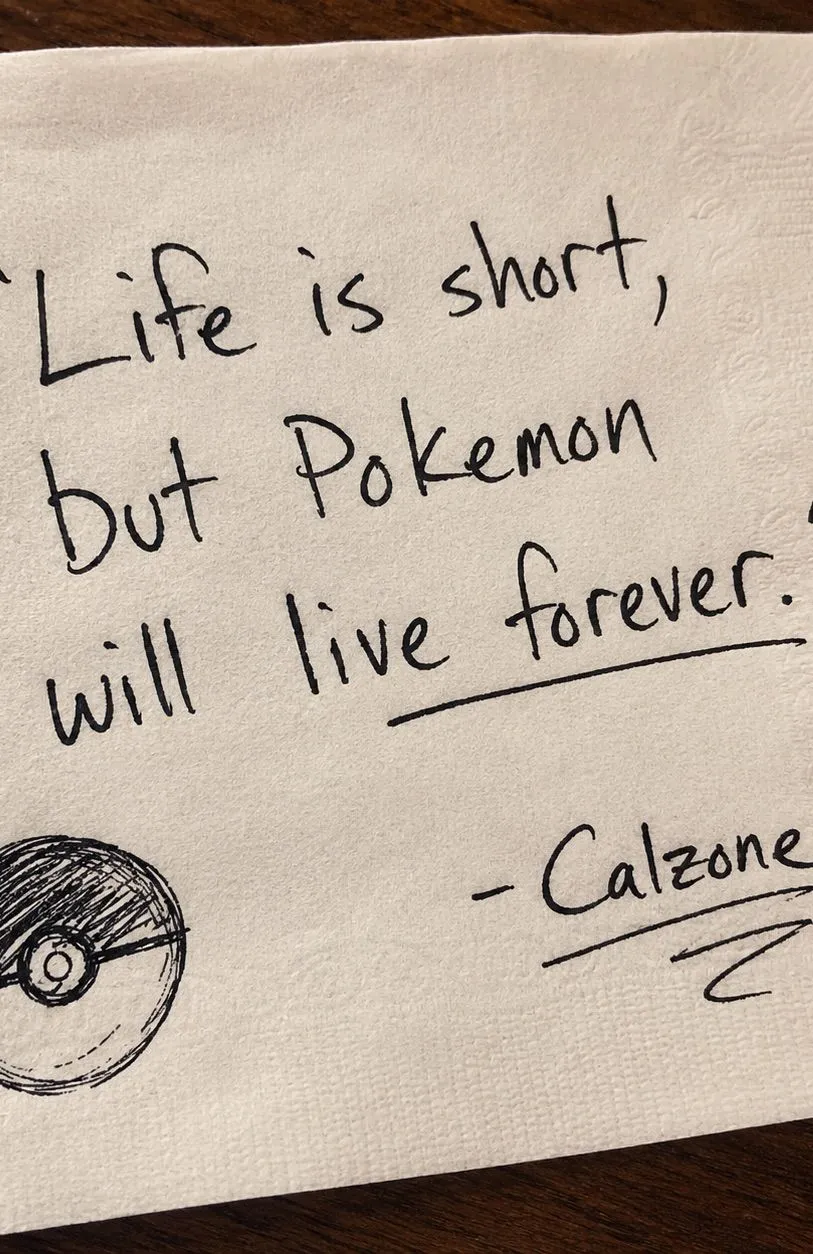 "Life is short,
but Pokemon
will live forever."
- Calzone